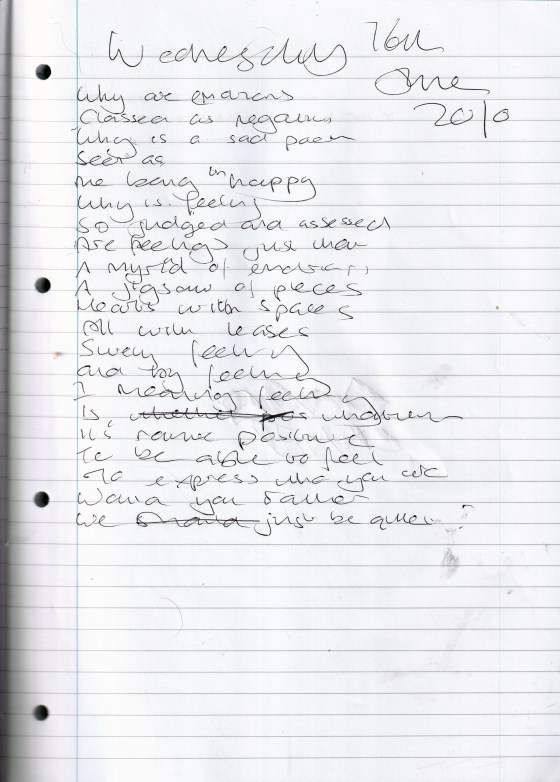 Wednesday 16th
June
2010
Why are emotions
Classed as negative
Why is a sad poem
Seen as
me being unhappy
Why is feeling
So judged and assessed
Are feelings just than
A myrid of emotions
A jigsaw of pieces
Hearts with spaces
All with leases
feeling
and feeling
I meaning feeling
is whether pos
its positive
to be able to feel
to express who you are
Would you rather
we should just be quiet?